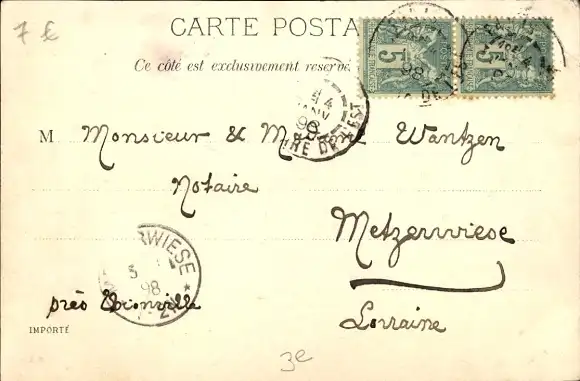 7 €
CARTE POSTA
Ce côté est exclusivement reservé
5 5
4
JANV
98
RE DE L'EST
M Monsieur & Madame Wantzen
Notaire
Metzerwiese
RWIESE
5
98
près Thionville
Lorraine
IMPORTÉ
3e